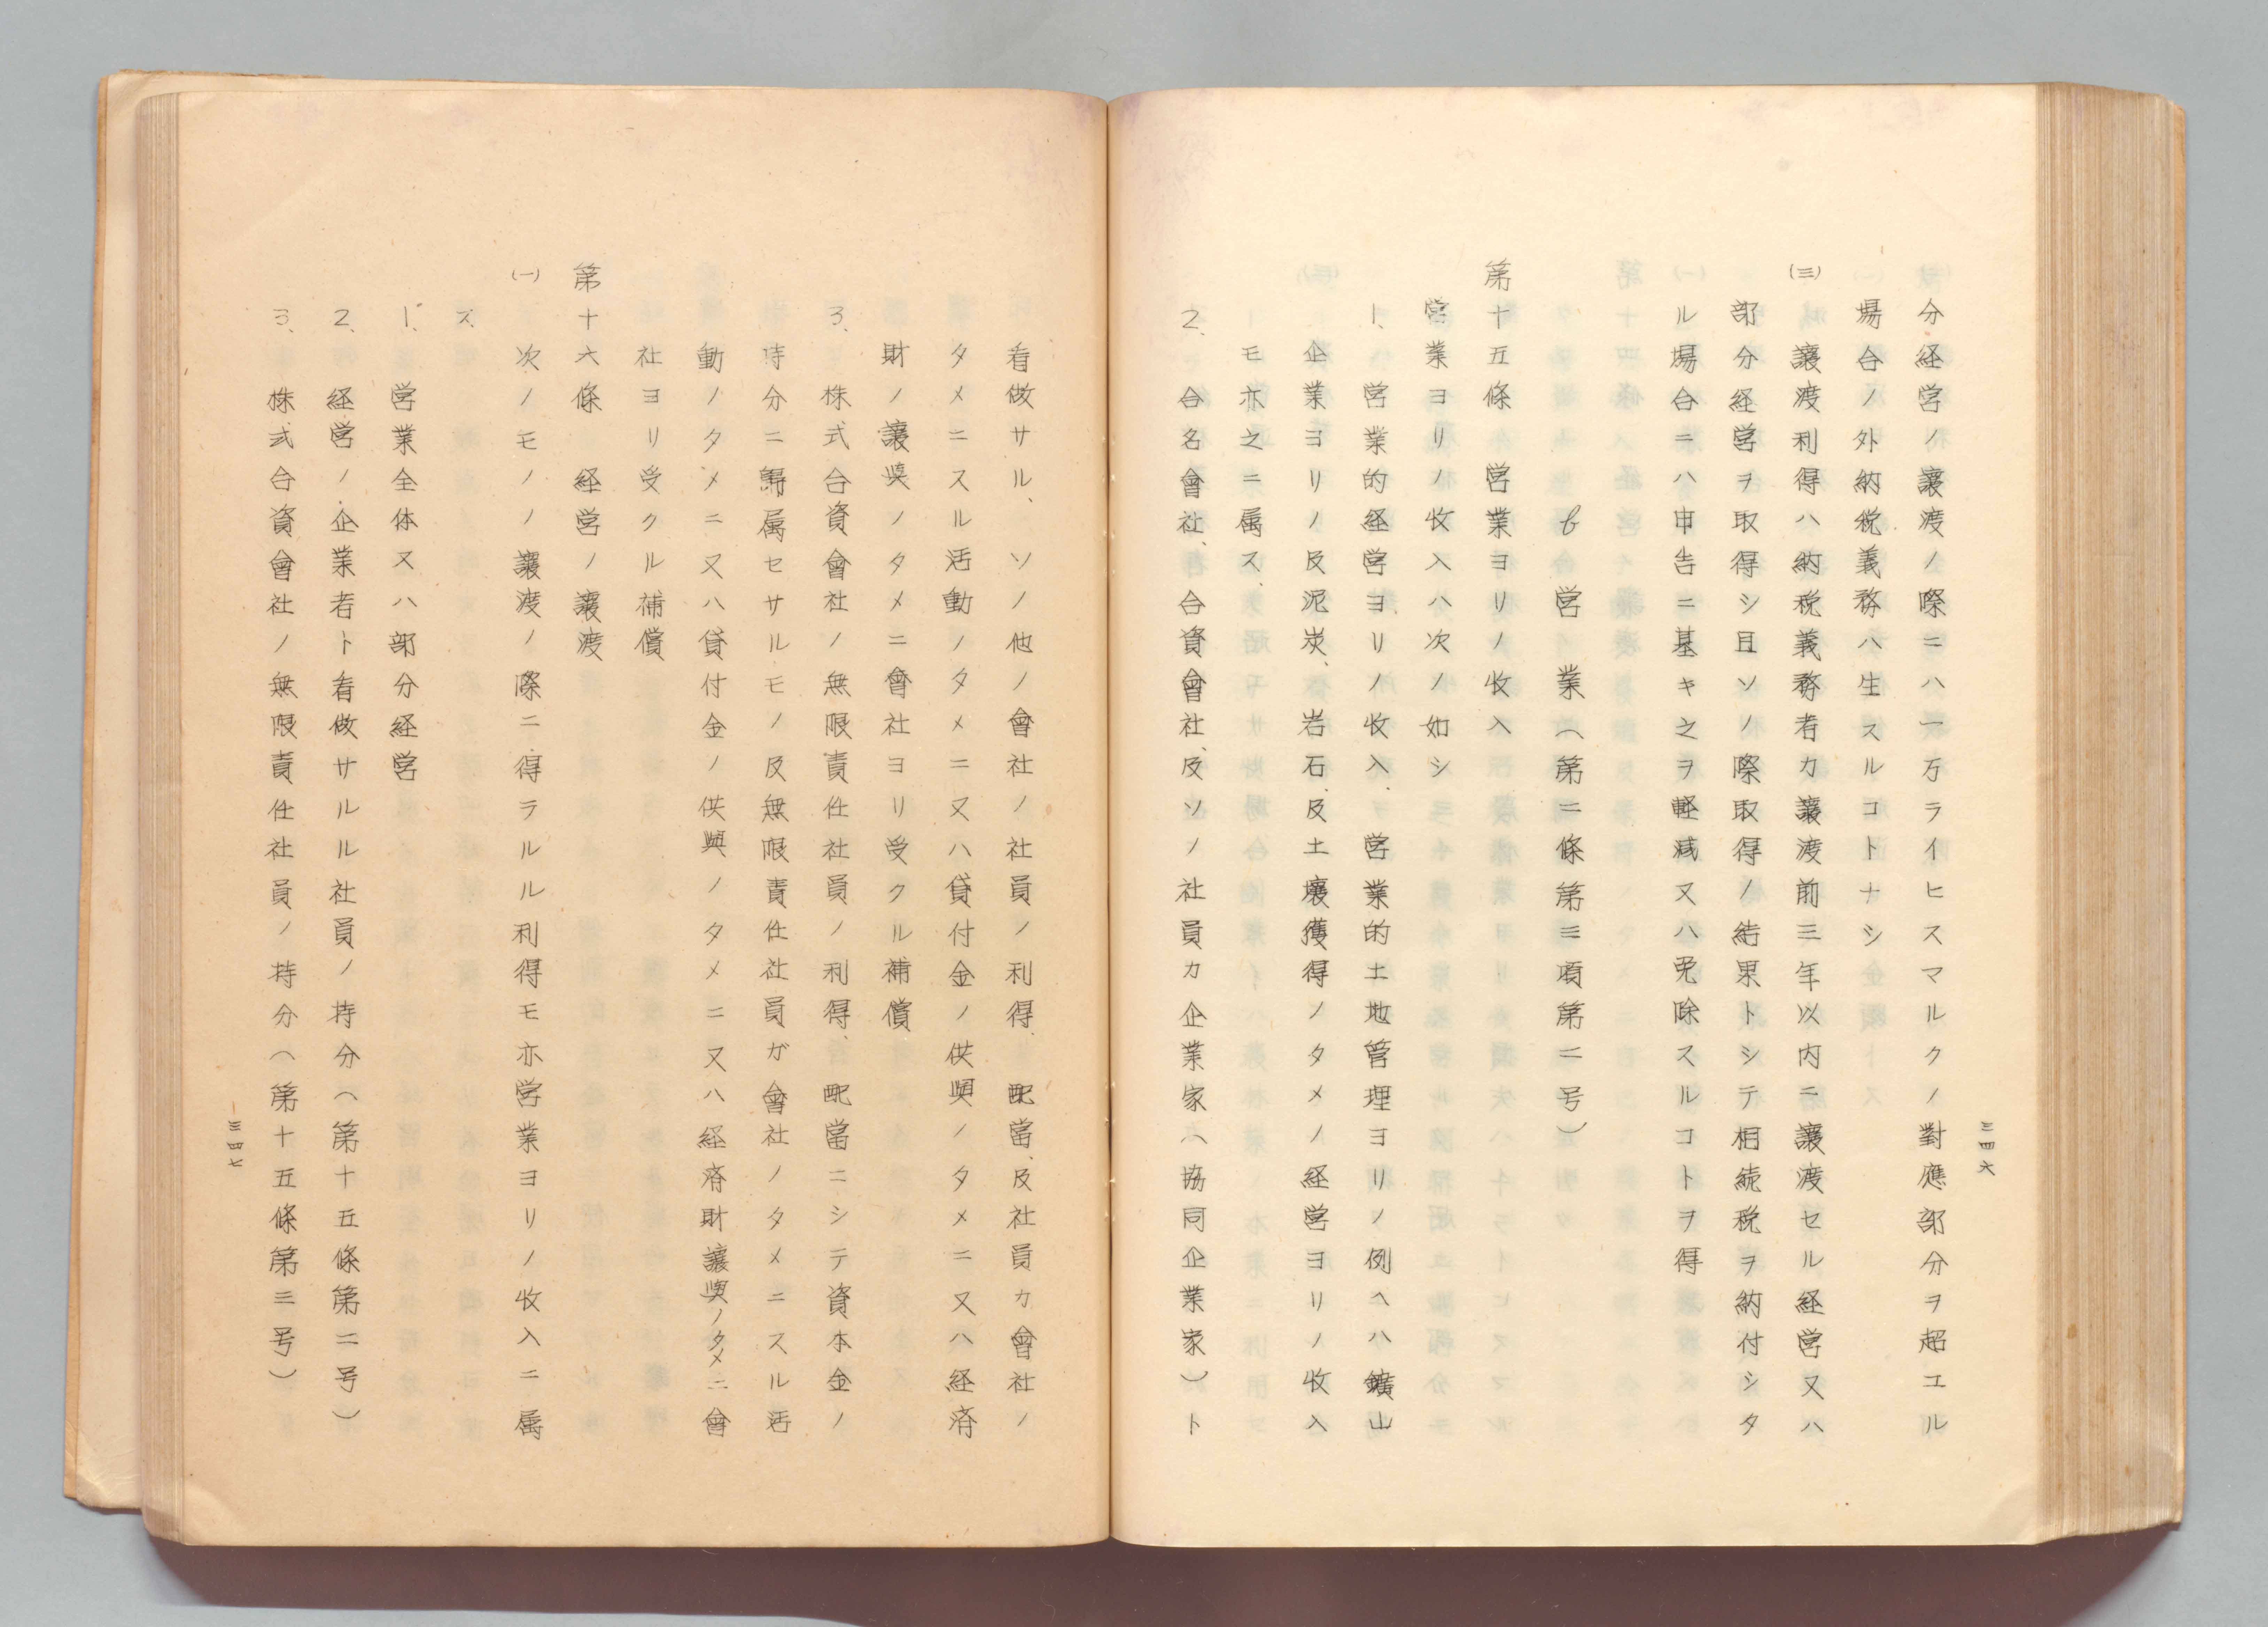 三四六
分経営ノ譲渡ノ際ニハ一万ライヒスマルクノ對應部分ヲ超エル
場合ノ外納税義務ハ生スルコトナシ
(三)譲渡利得ハ納税義務者カ譲渡前三年以内ニ譲渡セル経営又ハ
部分経営ヲ取得シ且ソノ際取得ノ結果トシテ相続税ヲ納付シタ
ル場合ニハ申告ニ基キ之ヲ軽减又ハ免除スルコトヲ得
b 営業(第二條第三項第二号)
第十五條 営業ヨリノ收入
営業ヨリノ收入ハ次ノ如シ
1、営業的経営ヨリノ收入、営業的土地管理ヨリノ例ヘハ鑛山
企業ヨリノ及泥炭、岩石、及土壤獲得ノタメノ経営ヨリノ收入
モ亦之ニ属ス、
2、合名會社、合資會社、及ソノ社員カ企業家(協同企業家)ト
看做サル、ソノ他ノ會社ノ社員ノ利得、配當、及社員カ會社ノ
タメニスル活動ノタメニ又ハ貸付金ノ供與ノタメニ又ハ経済
財ノ譲與ノタメニ會社ヨリ受クル補償
3、株式合資會社ノ無限責任社員ノ利得、配當ニシテ資本金ノ
持分ニ歸属セサルモノ及無限責任社員ガ會社ノタメニスル活
動ノタメニ又ハ貸付金ノ供與ノタメニ又ハ経済財譲與ノタメニ會
社ヨリ受クル補償
第十六條 経営ノ譲渡
(一)次ノモノノ譲渡ノ際ニ得ラルル利得モ亦営業ヨリノ收入ニ属
ス、
1、営業全体又ハ部分経営
2、経営ノ企業者ト看做サルル社員ノ持分(第十五條第二号)
3、株式合資會社ノ無限責任社員ノ持分(第十五條第三号)
三四七